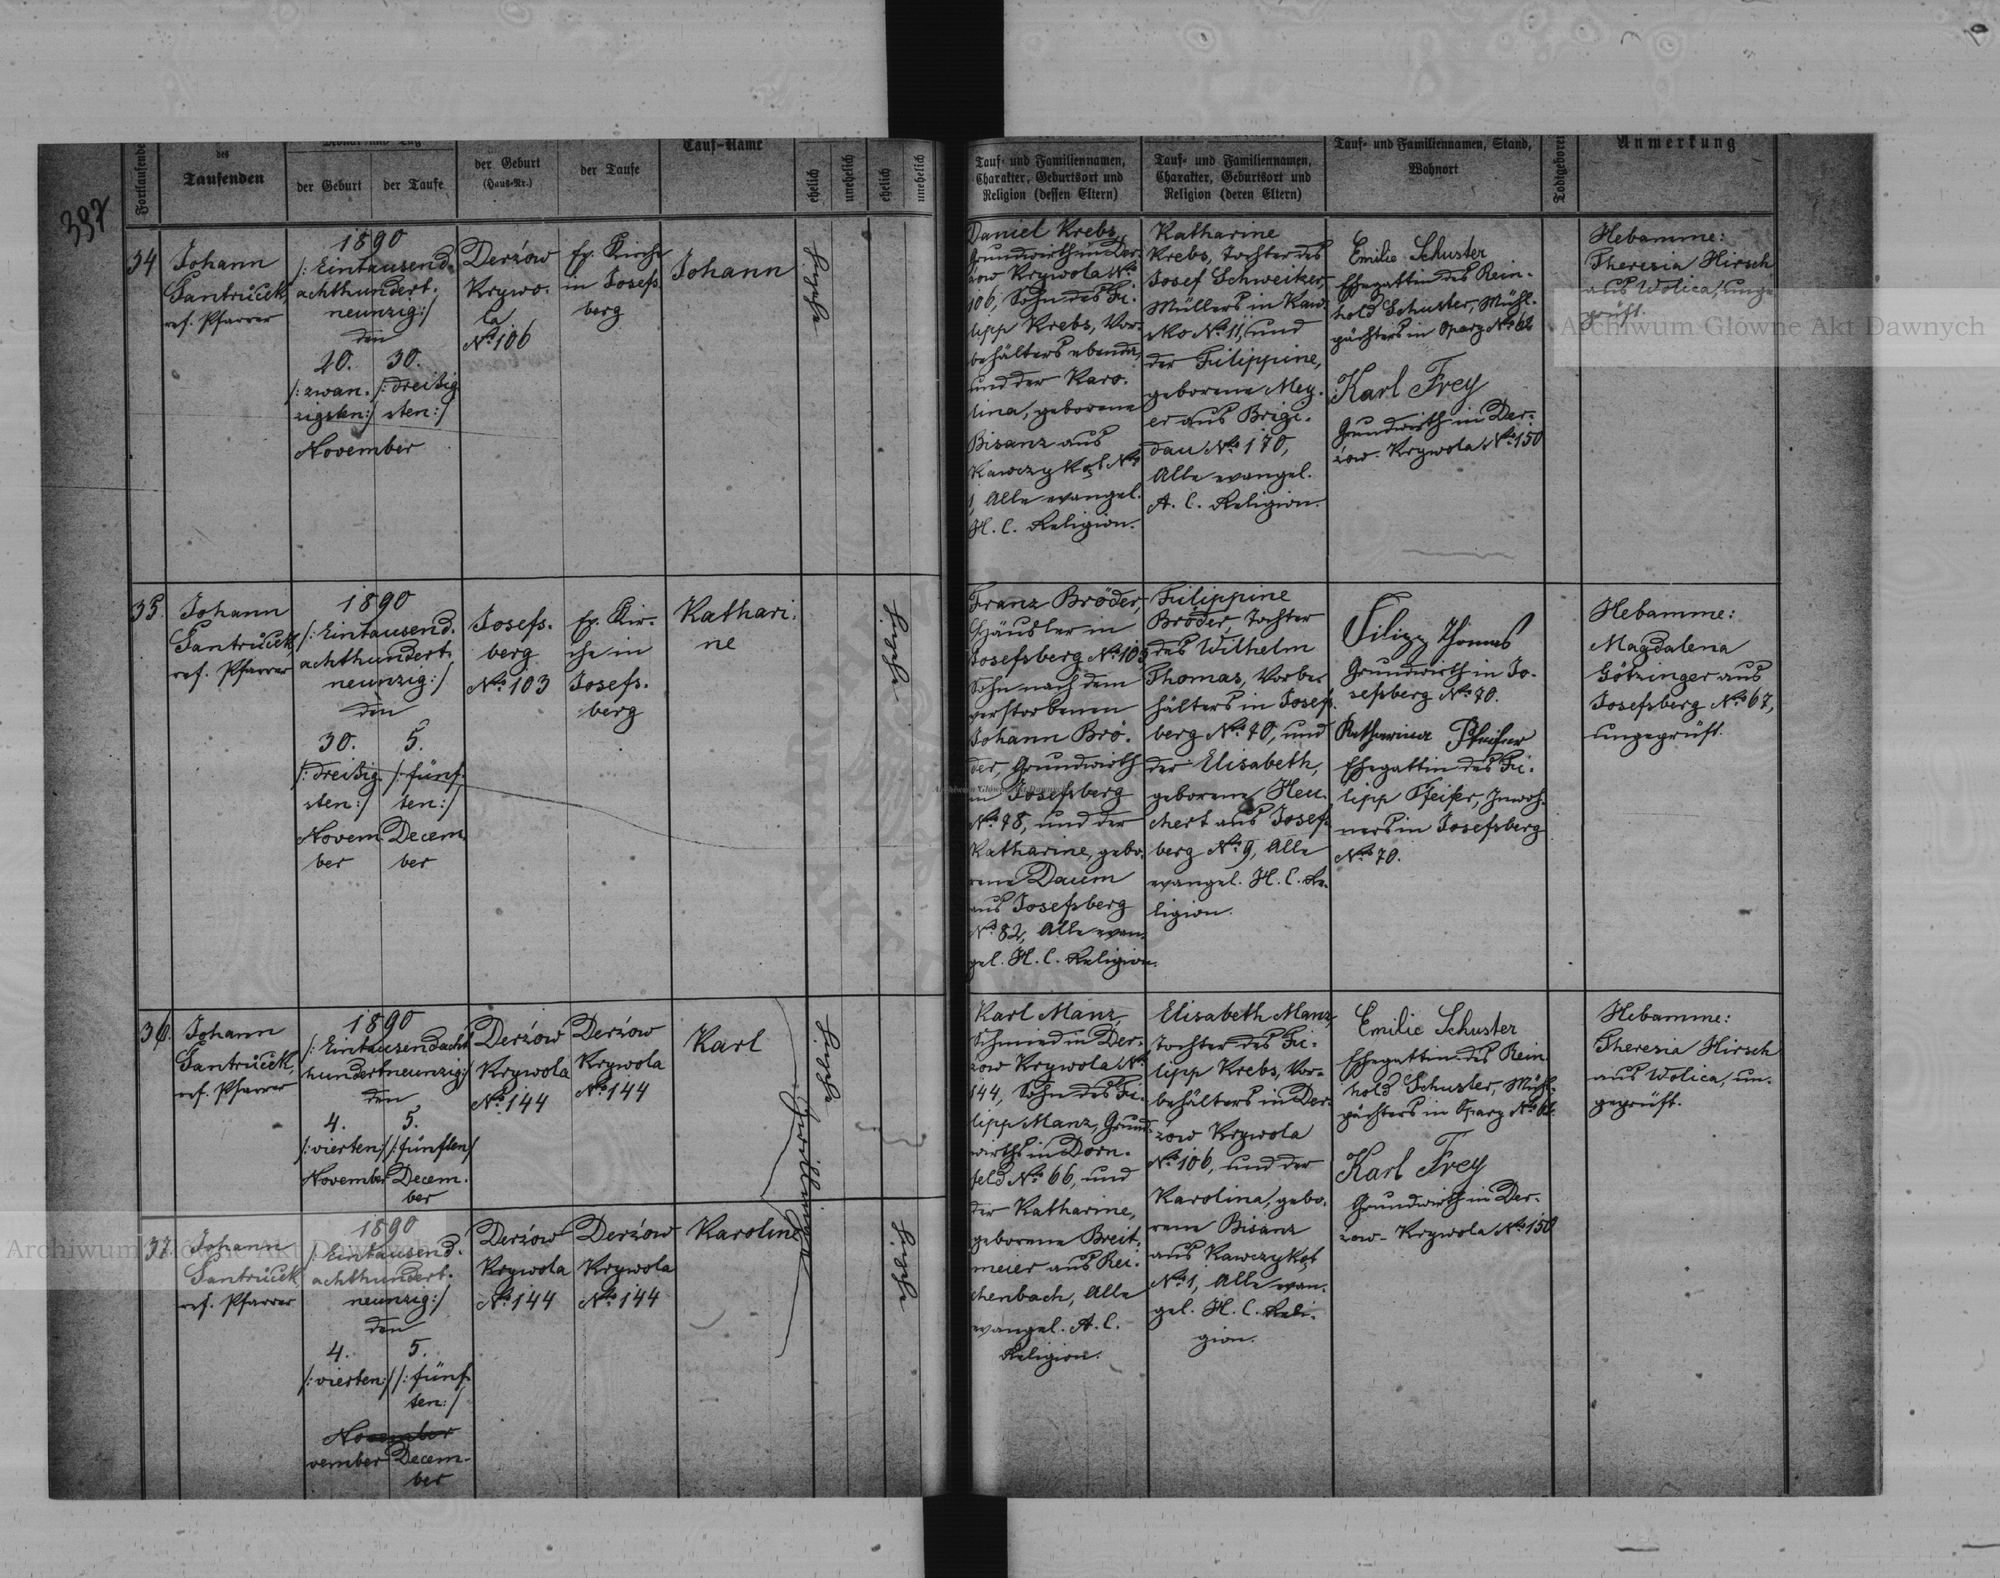 397
Fortlaufende
des
Taufenden
Monat und Tag
der Geburt
der Taufe
der Geburt
(Haus-Nr.)
der Taufe
Tauf-Name
ehelich
unehelich
ehelich
unehelich
Tauf- und Familiennamen,
Charakter, Geburtsort und
Religion (dessen Eltern)
Tauf- und Familiennamen,
Charakter, Geburtsort und
Religion (deren Eltern)
Tauf- und Familiennamen, Stand,
Wohnort
Todtgeboren
Anmerkung
34
Johann
Gantruček,
ref. Pfarrer
1890
/: Eintausend-
achthundert-
neunzig:/
den
20. 30.
/: zwan- /: dreißig
zigsten:/ sten:/
November
Derżów
Krywo-
la
No 106
ev. Kirche
in Josefs-
berg
Johann
Eheliche
Daniel Krebs,
Grundwirth in Der-
żow Krywola No
106, Sohn des Fi-
lipp Krebs, Vor-
behälters ebenda,
und der Karo-
lina, geborene
Bisanz aus
Kawczykąt No
1, Alle evangel.
H. C. Religion.
Katharine
Krebs, Tochter des
Josef Schweiker,
Müllers in Kaw-
sko No 11, und
der Filippine,
geborene Mey-
er aus Brigi-
dau No 170,
Alle evangel.
A. C. Religion.
Emilie Schuster
Ehegattin des Rein-
hold Schuster, Mühl-
pächters in Opary No 62
Karl Frey
Grundwirth in Der-
żow-Krywola No 150
Hebamme:
Theresia Hirsch
aus Wolica, unge-
prüft.
35.
Johann
Gantruček,
ref. Pfarrer
1890
/: Eintausend-
achthundert-
neunzig:/
den
30. 5.
/: dreißig- /: fünf-
sten:/ ten:/
Novem- Decem-
ber ber
Josefs-
berg
No 103
ev. Kir-
che in
Josefs-
berg
Kathari-
ne
Eheliche
Franz Bröder,
Häusler in
Josefsberg No 103
Sohn nach dem
verstorbenen
Johann Brö-
der, Grundwirth
in Josefsberg
No 78, und der
Katharine, gebo-
rene Daum
aus Josefsberg
No 82, Alle evan-
gel. H. C. Religion.
Filippine
Bröder, Tochter
des Wilhelm
Thomas, Vorbe-
hälters in Josefs-
berg No 70, und
der Elisabeth,
geborene Heu-
chert aus Josefs-
berg No 9, Alle
evangel. H. C. Re-
ligion.
Filipp Thomas
Grundwirth in Jo-
sefsberg No 70.
Katharina Pfeifer
Ehegattin des Fi-
lipp Pfeifer, Inwoh-
ners in Josefsberg
No 70.
Hebamme:
Magdalena
Götzinger aus
Josefsberg No 67,
ungeprüft.
36.
Johann
Gantruček,
ref. Pfarrer
1890
/: Eintausendacht-
hundertneunzig:/
den
4. 5.
/: vierten:/ /: fünften:/
November Decem-
ber
Derżów
Krywola
No 144
Derżow
Krywola
No 144
Karl
Eheliche
Zwillinge
Karl Manz,
Schmied in Der-
żow Krywola No
144, Sohn des Fi-
lipp Manz, Grund-
wirths in Dorn-
feld No 66, und
der Katharine,
geborene Breit-
meier aus Rei-
chenbach, Alle
evangel. A. C.
Religion.
Elisabeth Manz,
Tochter des Fi-
lipp Krebs, Vor-
behälters in Der-
żow Krywola
No 106, und der
Karolina, gebo-
rene Bisanz
aus Kawczykąt
No 1, Alle evan-
gel. H. C. Reli-
gion.
Emilie Schuster
Ehegattin des Rein-
hold Schuster, Mühl-
pächters in Opary No 62.
Karl Frey
Grundwirth in Der-
żow-Krywola No 150
Hebamme:
Theresia Hirsch
aus Wolica, un-
geprüft.
37.
Johann
Gantruček,
ref. Pfarrer
1890
/: Eintausend-
achthundert-
neunzig:/
den
4. 5.
/: vierten:/ /: fünf-
ten:/
November
vember Decem-
ber
Derżów
Krywola
No 144
Derżow
Krywola
No 144
Karoline
Eheliche
Archiwum Główne Akt Dawnych
Archiwum Główne Akt Dawnych
Archiwum Główne Akt Dawnych